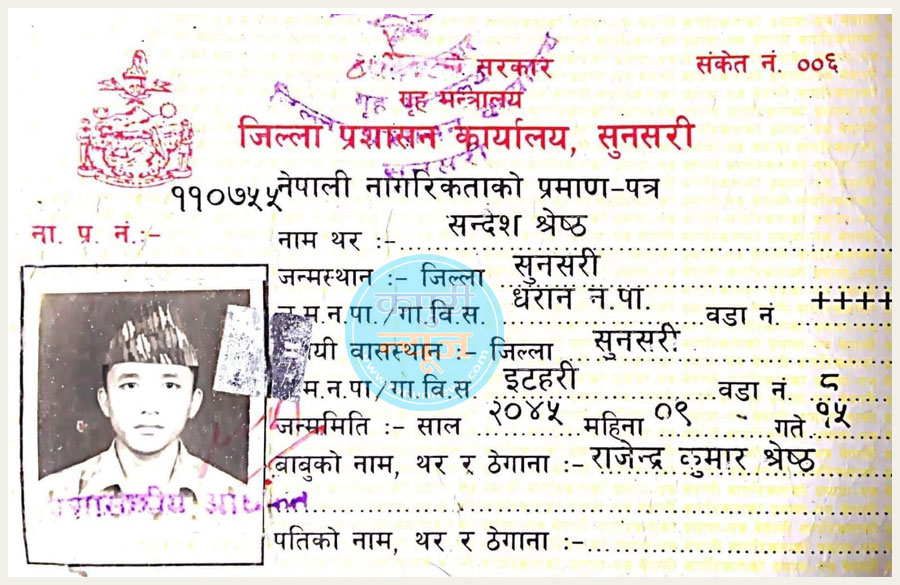 सरकार
संकेत नं. ००६
गृह मन्त्रालय
जिल्ला प्रशासन कार्यालय, सुनसरी
११०७५५
नेपाली नागरिकताको प्रमाण-पत्र
ना. प्र. नं:-
नाम थर :- सन्देश श्रेष्ठ
जन्मस्थान :- जिल्ला सुनसरी
म.न.पा./गा.वि.स. धरान न.पा. वडा नं. ++++
वासस्थान :- जिल्ला सुनसरी
म.न.पा/गा.वि.स. इटहरी वडा नं. ८
जन्ममिति :- साल २०४५ महिना ०९ गते १५
बाबुको नाम, थर र ठेगाना :- राजेन्द्र कुमार श्रेष्ठ
पतिको नाम, थर र ठेगाना :-
न्यूज